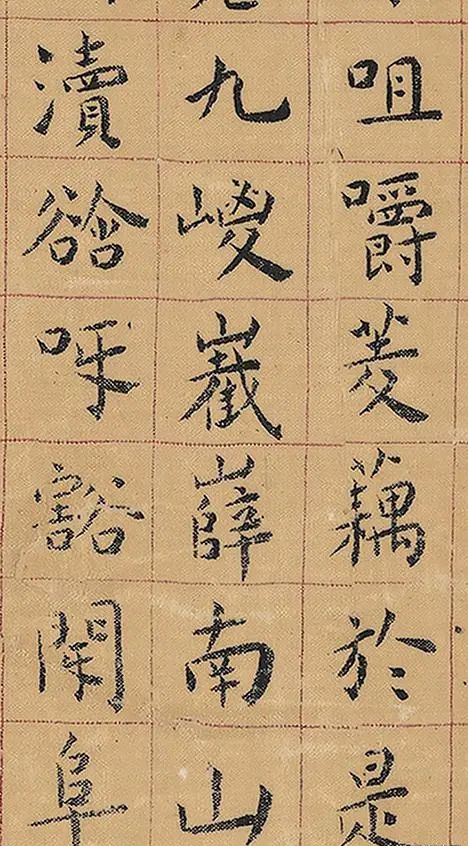 咀嚼菱藕於是
九嵕巀嶭南山
瀆谽呀豁閜阜